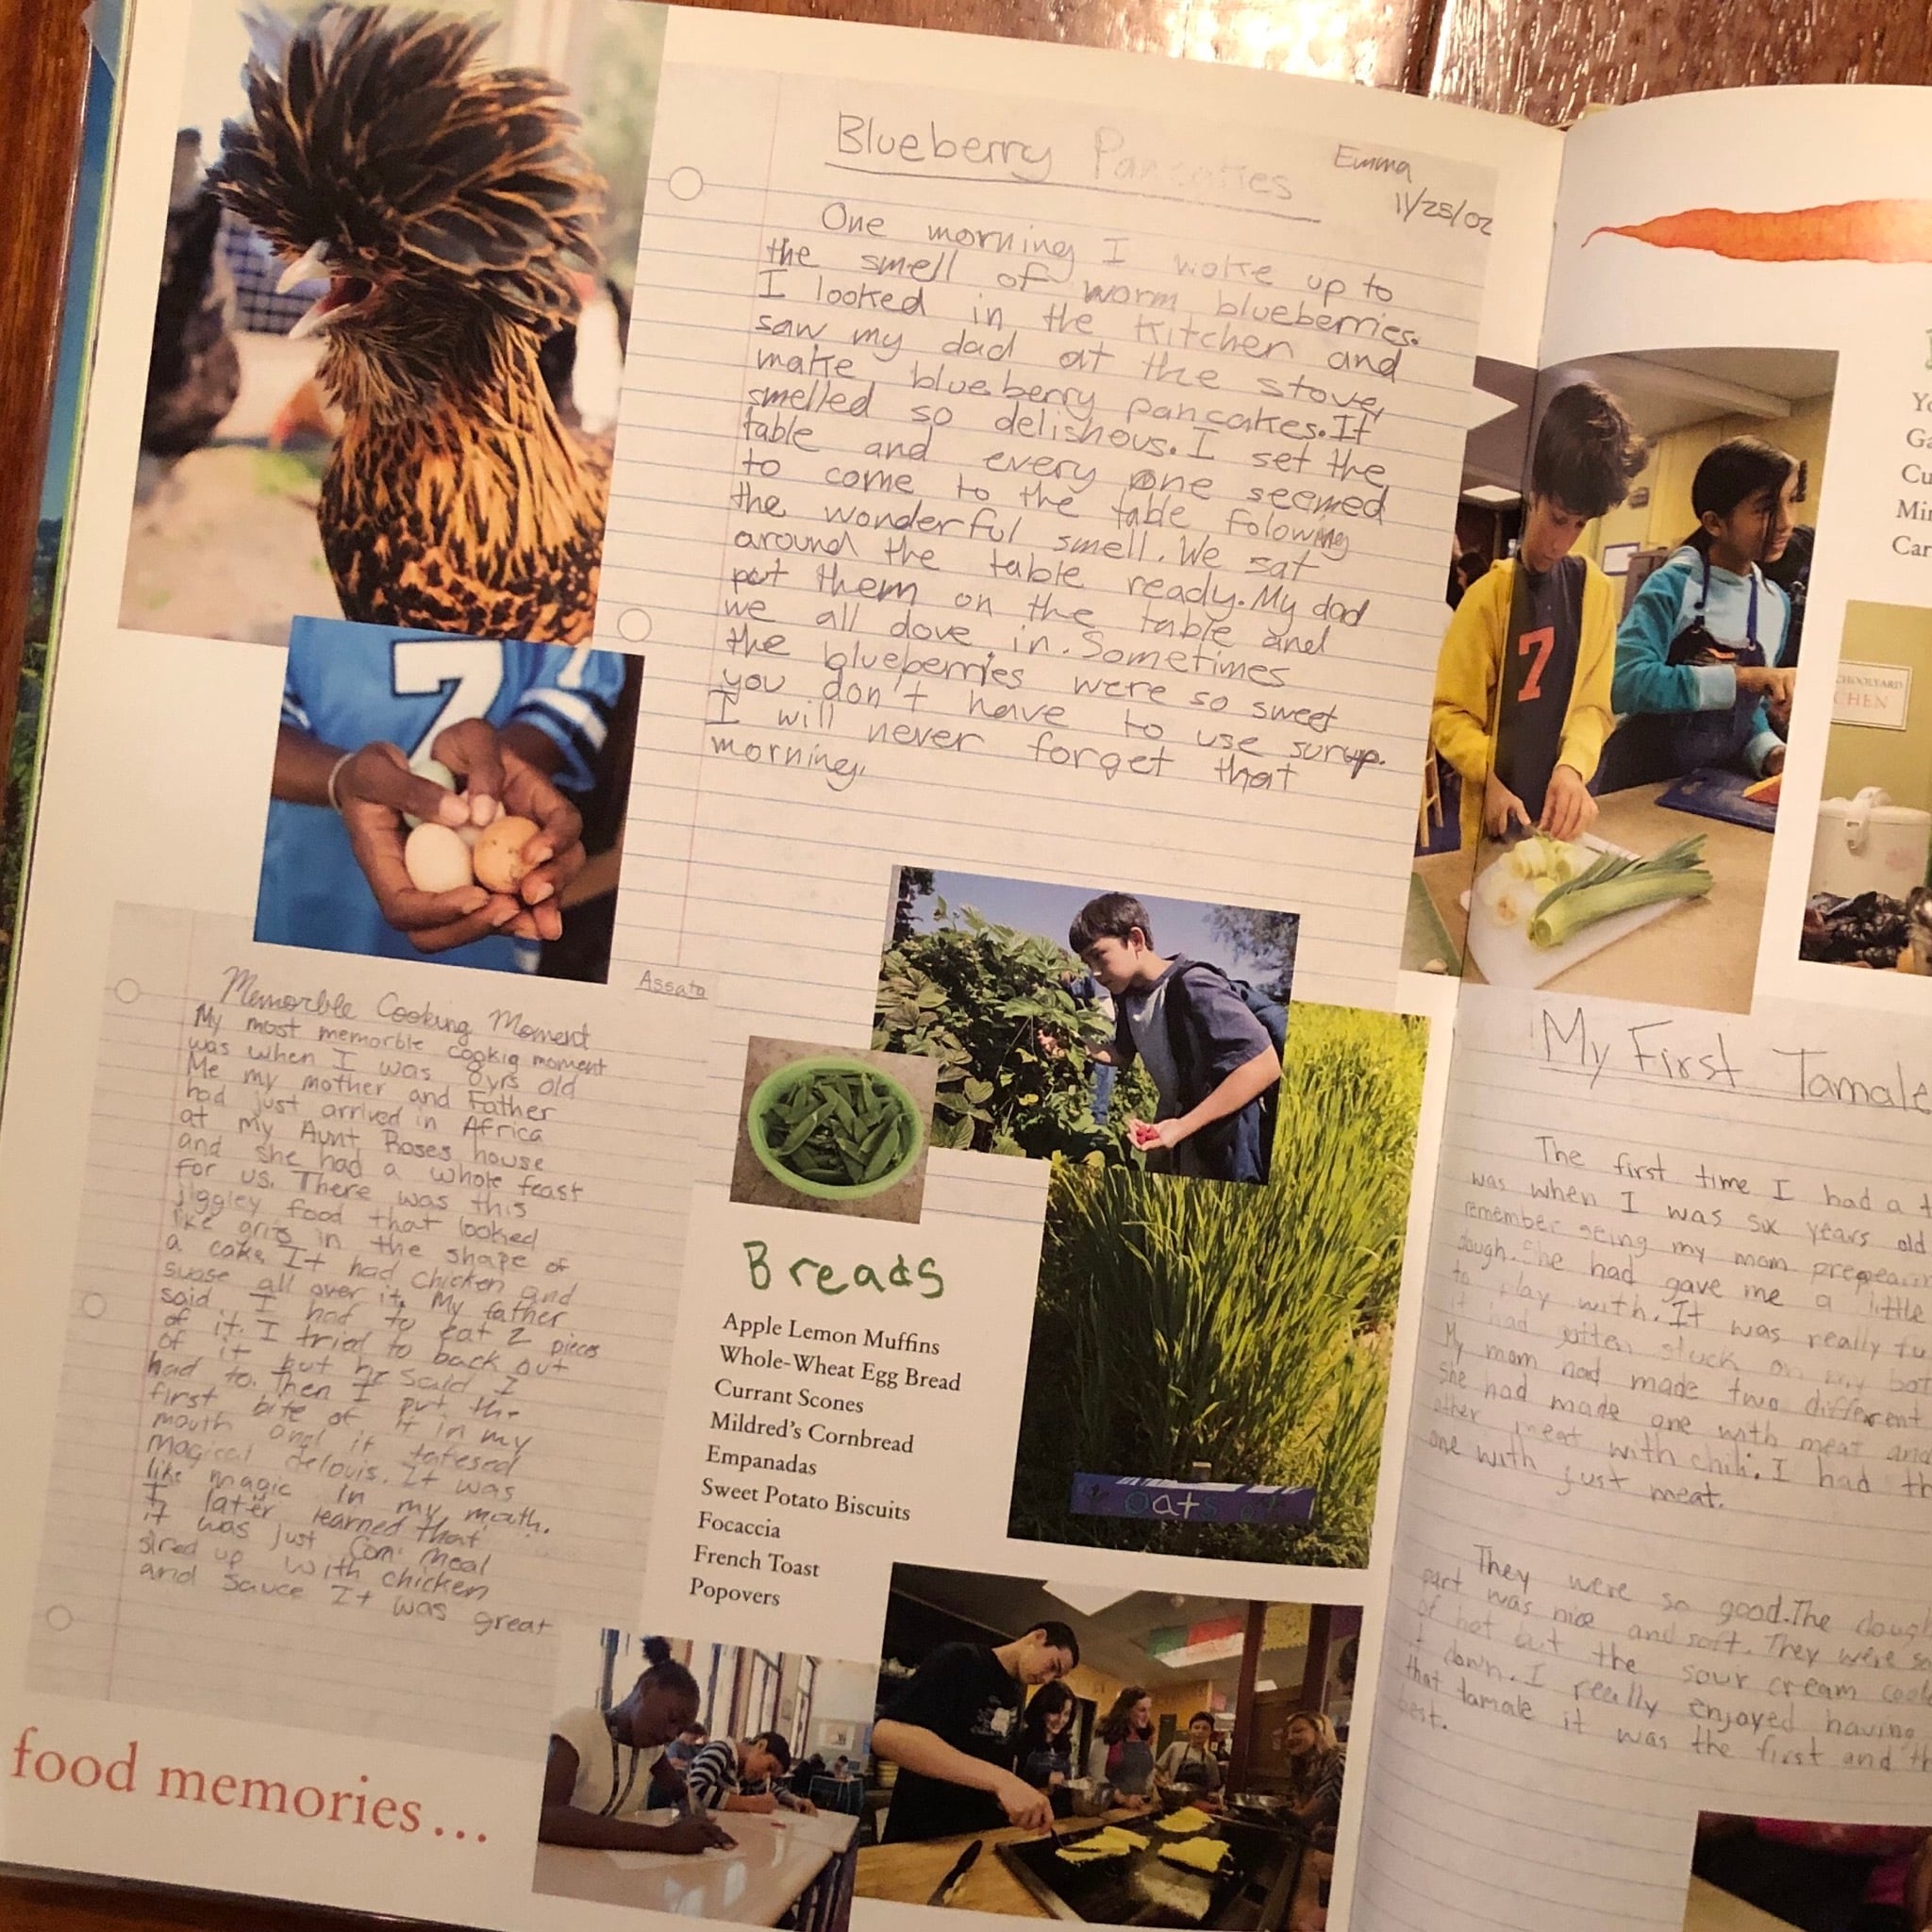 Blueberry Pancakes
Emma
11/25/02
One morning I woke up to
the smell of worm blueberries.
I looked in the kitchen and
saw my dad at the stove,
make blueberry pancakes. It
smelled so delishous. I set the
table and every one seemed
to come to the table folowing
the wonderful smell. We sat
around the table ready. My dad
put them on the table and
we all dove in. Sometimes
the blueberries were so sweet
you don't have to use surup.
I will never forget that
morning.
7
Assata
Memorble Cooking Moment
My most memorble cookig moment
was when I was 8yrs old
Me my mother and Father
had just arrived in Africa
at my Aunt Roses house
and she had a whole feast
for us. There was this
jiggley food that looked
like grits in the shape of
a cake. It had chicken and
suase all over it. My father
said I had to eat 2 pieces
of it. I tried to back out
of it but he said I
had to. Then I put the
first bite of it in my
mouth and it tatesed
magical delouis. It was
like magic in my mouth.
I later learned that
it was just corn meal
sired up with chicken
and sauce It was great
food memories...
Breads
Apple Lemon Muffins
Whole-Wheat Egg Bread
Currant Scones
Mildred's Cornbread
Empanadas
Sweet Potato Biscuits
Focaccia
French Toast
Popovers
oats
7
Yo
Ga
Cu
Min
Car
CHOOLYARD
CHEN
My First Tamale
The first time I had a t
was when I was six years old
remember seing my mom prepearin
dough. She had gave me a little
to play with. It was really fu
it had gitten stuck on my bot
My mom had made two different
she had made one with meat and
other meat with chili. I had th
one with just meat.
They were so good. The dough
part was nice and soft. They were so
of hot but the sour cream cool
it down. I really enjoyed having
that tamale it was the first and th
best.